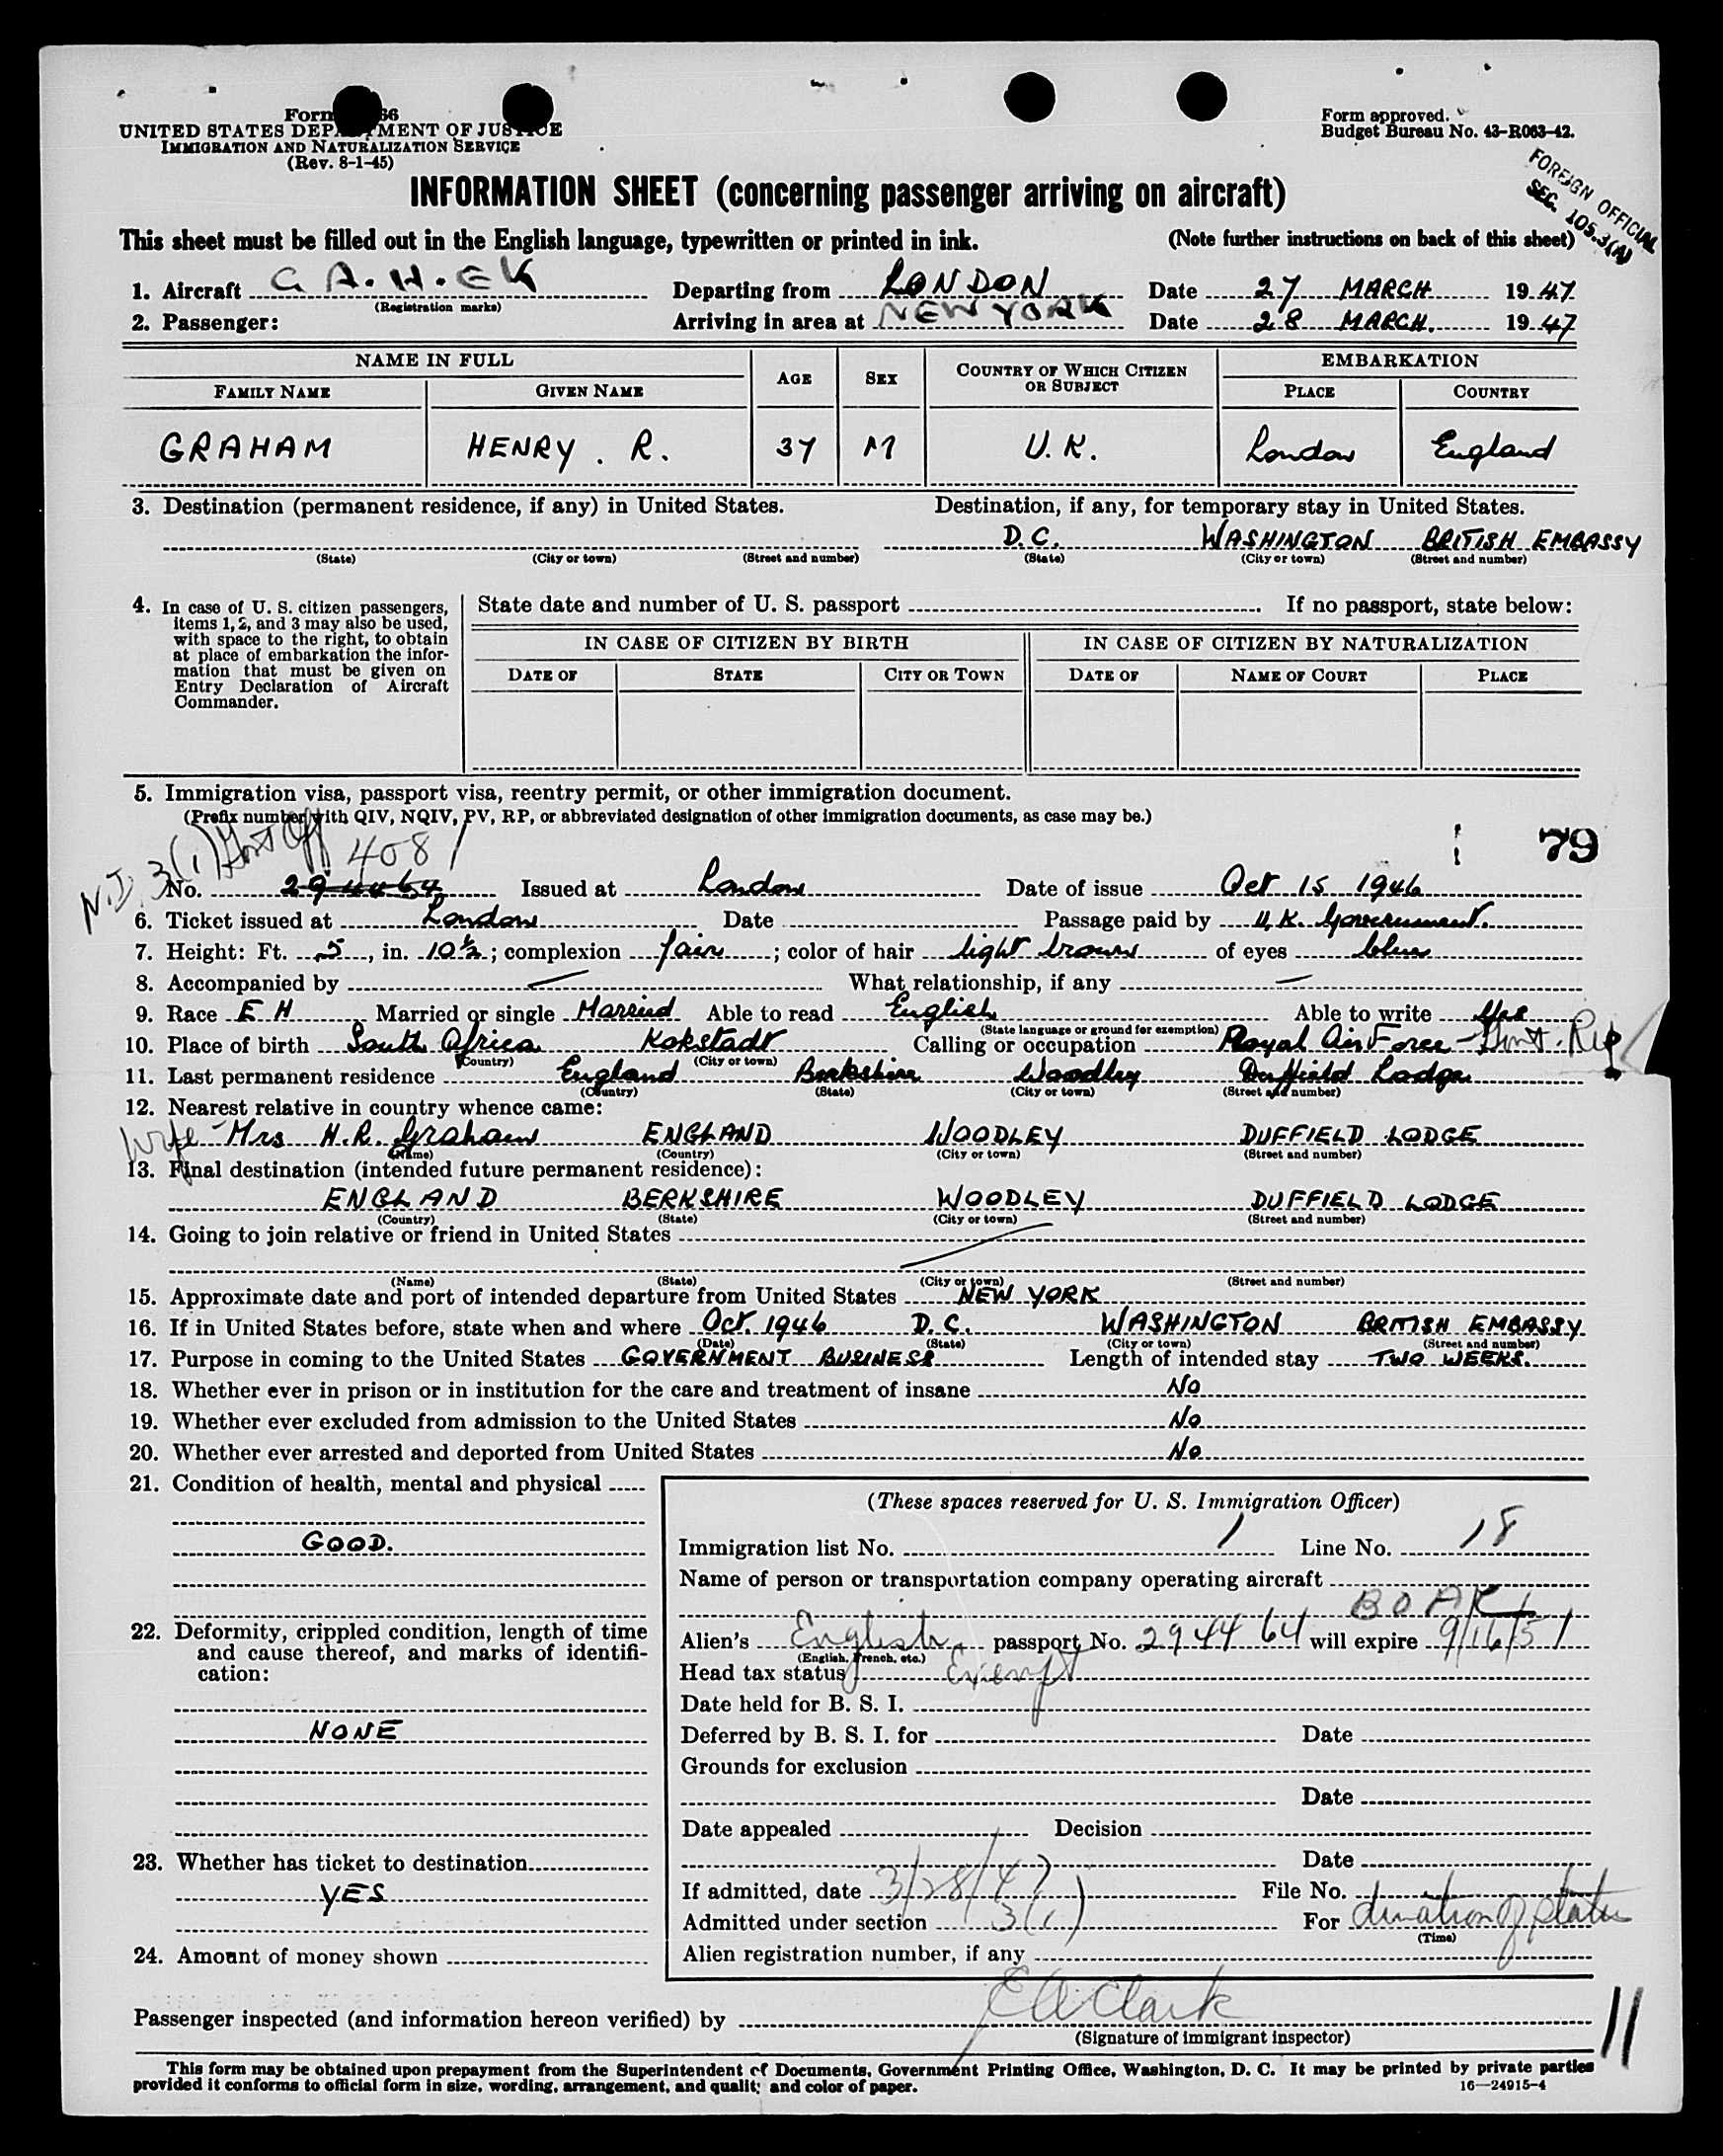 Form 66
UNITED STATES DEPARTMENT OF JUSTICE
IMMIGRATION AND NATURALIZATION SERVICE
(Rev. 8-1-45)
Form approved.
Budget Bureau No. 43-R063-42.
INFORMATION SHEET (concerning passenger arriving on aircraft)
FOREIGN OFFICIAL
SEC. 105.3(A)
This sheet must be filled out in the English language, typewritten or printed in ink. (Note further instructions on back of this sheet)
1. Aircraft G A.H.EK Departing from LONDON Date 27 MARCH 1947
(Registration marks)
2. Passenger: Arriving in area at NEW YORK Date 28 MARCH. 1947
NAME IN FULL AGE SEX COUNTRY OF WHICH CITIZEN OR SUBJECT EMBARKATION
FAMILY NAME GIVEN NAME PLACE COUNTRY
GRAHAM HENRY. R. 37 M U.K. London England
3. Destination (permanent residence, if any) in United States. Destination, if any, for temporary stay in United States.
D.C. WASHINGTON BRITISH EMBASSY
(State) (City or town) (Street and number) (State) (City or town) (Street and number)
4. In case of U. S. citizen passengers, items 1, 2, and 3 may also be used, with space to the right, to obtain at place of embarkation the information that must be given on Entry Declaration of Aircraft Commander.
State date and number of U. S. passport If no passport, state below:
IN CASE OF CITIZEN BY BIRTH IN CASE OF CITIZEN BY NATURALIZATION
DATE OF STATE CITY OR TOWN DATE OF NAME OF COURT PLACE
5. Immigration visa, passport visa, reentry permit, or other immigration document.
(Prefix number with QIV, NQIV, PV, RP, or abbreviated designation of other immigration documents, as case may be.)
79
N.I. 3(1) Govt Off 4081
No. 294464 Issued at London Date of issue Oct 15 1946
6. Ticket issued at London Date Passage paid by U.K. Government.
7. Height: Ft. 5, in. 10½; complexion fair; color of hair light brown of eyes blue
8. Accompanied by — What relationship, if any —
9. Race E H Married or single Married Able to read English Able to write Yes
(State language or ground for exemption)
10. Place of birth South Africa Kokstadt Calling or occupation Royal Air Force - Govt. Rep
(Country) (City or town)
11. Last permanent residence England Berkshire Woodley Duffield Lodge
(Country) (State) (City or town) (Street and number)
12. Nearest relative in country whence came:
Wife - Mrs H.R. Graham ENGLAND WOODLEY DUFFIELD LODGE
(Name) (Country) (City or town) (Street and number)
13. Final destination (intended future permanent residence):
ENGLAND BERKSHIRE WOODLEY DUFFIELD LODGE
(Country) (State) (City or town) (Street and number)
14. Going to join relative or friend in United States
(Name) (State) (City or town) (Street and number)
15. Approximate date and port of intended departure from United States NEW YORK
16. If in United States before, state when and where Oct. 1946 D.C. WASHINGTON BRITISH EMBASSY
(Date) (State) (City or town) (Street and number)
17. Purpose in coming to the United States GOVERNMENT BUSINESS Length of intended stay TWO WEEKS.
18. Whether ever in prison or in institution for the care and treatment of insane No
19. Whether ever excluded from admission to the United States No
20. Whether ever arrested and deported from United States No
21. Condition of health, mental and physical
GOOD.
22. Deformity, crippled condition, length of time and cause thereof, and marks of identification:
NONE
23. Whether has ticket to destination
YES
24. Amount of money shown
(These spaces reserved for U. S. Immigration Officer)
Immigration list No. 1 Line No. 18
Name of person or transportation company operating aircraft
B O A C
Alien's English passport No. 294464 will expire 9/16/51
(English, French, etc.)
Head tax status Exempt
Date held for B. S. I.
Deferred by B. S. I. for Date
Grounds for exclusion
Date
Date appealed Decision
Date
If admitted, date 3/28/47 File No.
Admitted under section 3(1) For duration of status
(Time)
Alien registration number, if any
Passenger inspected (and information hereon verified) by E A Clark
(Signature of immigrant inspector)
11
This form may be obtained upon prepayment from the Superintendent of Documents, Government Printing Office, Washington, D. C. It may be printed by private parties
provided it conforms to official form in size, wording, arrangement, and quality and color of paper.
16—24915-4